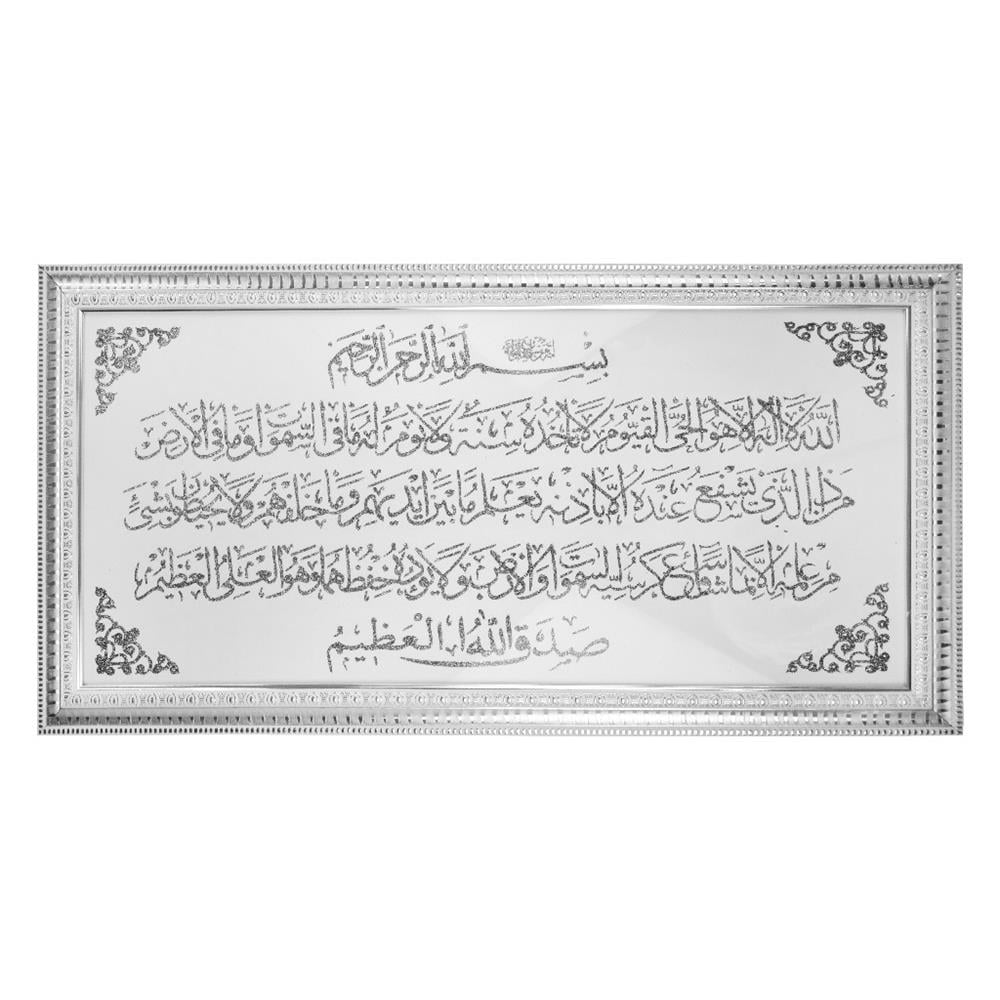 بسم الله الرحمن الرحيم
الله لا إله إلا هو الحي القيوم لا تأخذه سنة ولا نوم له ما في السموات وما في الأرض
من ذا الذي يشفع عنده إلا بإذنه يعلم ما بين أيديهم وما خلفهم ولا يحيطون بشيء
من علمه إلا بما شاء وسع كرسيه السموات والأرض ولا يؤده حفظهما وهو العلي العظيم
صدق الله العظيم